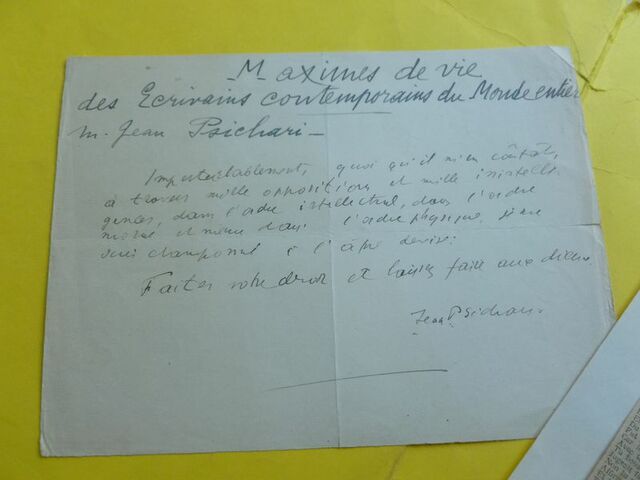 Maximes de vie
des Ecrivains contemporains du Monde entier
M. Jean Psichari —
Imperturbablement, quoi qu'il m'en coûtât,
à travers mille oppositions et mille inintelli-
gences, dans l'ordre intellectuel, dans l'ordre
moral et même dans l'ordre physique, je me
suis cramponné à l'âpre devise:
Faites votre devoir et laissez faire aux dieux.
Jean Psichari